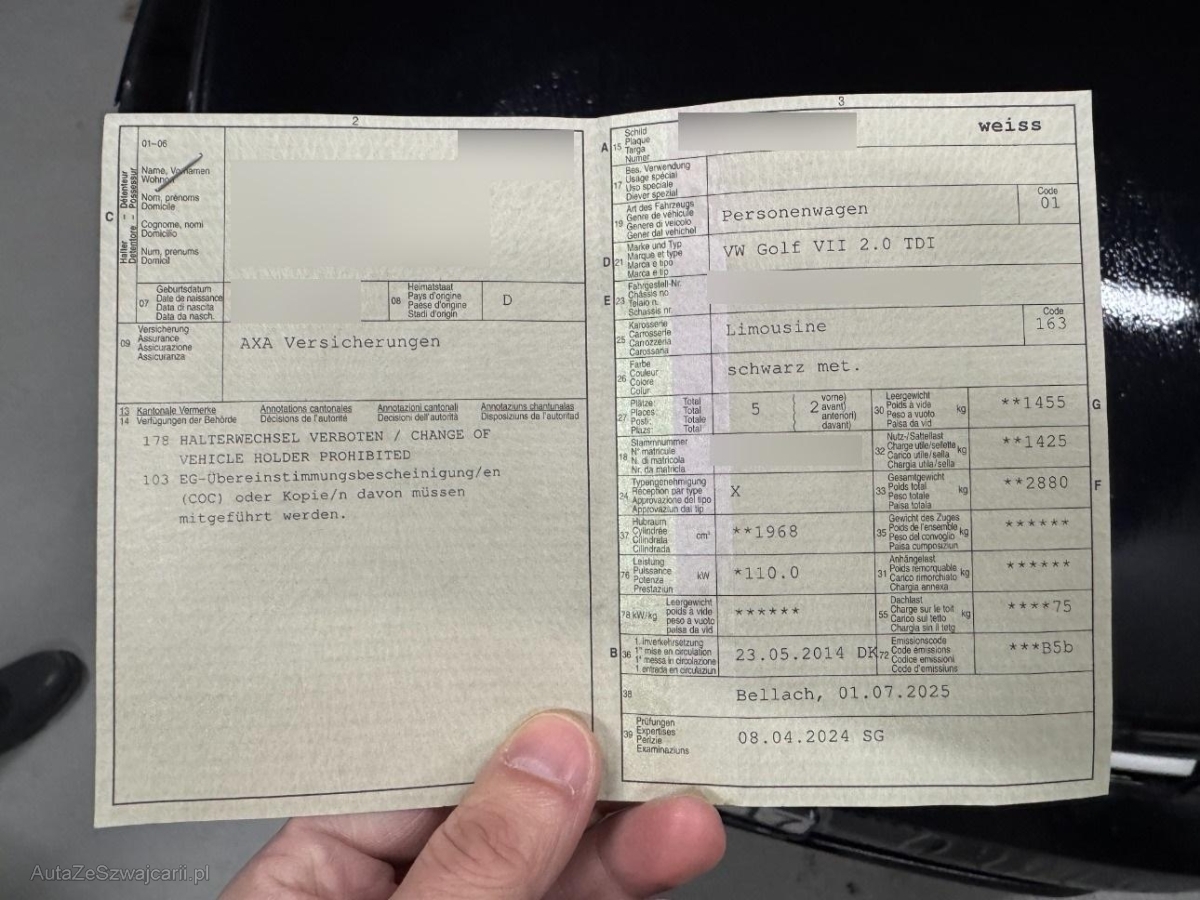 2
01-06
Name, Vornamen
Wohnort
Nom, prénoms
Domicile
Cognome, nomi
Domicilio
Num, prenums
Domicil
C
Halter – Détenteur
Detentore – Possessur
07
Geburtsdatum
Date de naissance
Data di nascita
Data da nasch.
08
Heimatstaat
Pays d'origine
Paese d'origine
Stadi d'origin
D
09
Versicherung
Assurance
Assicurazione
Assicuranza
AXA Versicherungen
13 Kantonale Vermerke Annotations cantonales Annotazioni cantonali Annotaziuns chantunalas
14 Verfügungen der Behörde Décisions de l'autorité Decisioni dell'autorità Disposiziuns da l'autoritad
178 HALTERWECHSEL VERBOTEN / CHANGE OF
VEHICLE HOLDER PROHIBITED
103 EG-Übereinstimmungsbescheinigung/en
(COC) oder Kopie/n davon müssen
mitgeführt werden.
3
A 15
Schild
Plaque
Targa
Numer
weiss
17
Bes. Verwendung
Usage spécial
Uso speciale
Diever spezial
19
Art des Fahrzeugs
Genre de véhicule
Genere di veicolo
Gener dal vehichel
Personenwagen
Code
01
D 21
Marke und Typ
Marque et type
Marca e tipo
Marca e tip
VW Golf VII 2.0 TDI
E 23
Fahrgestell-Nr.
Châssis no
Telaio n.
Schassis nr.
25
Karosserie
Carrosserie
Carrozzeria
Carossaria
Limousine
Code
163
26
Farbe
Couleur
Colore
Colur
schwarz met.
27
Plätze: Total
Places: Total
Posti: Totale
Plazs: Total
5
2
vorne)
avant)
anteriori)
davant)
30
Leergewicht
Poids à vide
Peso a vuoto
Paisa da vid
kg
**1455
G
18
Stammnummer
N° matricule
N. di matricola
Nr. da matricla
32
Nutz-/Sattellast
Charge utile/sellette
Carico utile/sella
Chargia utila/sella
kg
**1425
24
Typengenehmigung
Réception par type
Approvazione del tipo
Approvaziun dal tip
X
33
Gesamtgewicht
Poids total
Peso totale
Paisa totala
kg
**2880
F
37
Hubraum
Cylindrée
Cilindrata
Cilindrada
cm³
**1968
35
Gewicht des Zuges
Poids de l'ensemble
Peso del convoglio
Paisa cumposiziun
kg
******
76
Leistung
Puissance
Potenza
Prestaziun
kW
*110.0
31
Anhängelast
Poids remorquable
Carico rimorchiato
Chargia annexa
kg
******
78 kW/kg
Leergewicht
poids à vide
peso a vuoto
paisa da vid
******
55
Dachlast
Charge sur le toit
Carico sul tetto
Chargia sin il tetg
kg
****75
B 36
1. Inverkehrsetzung
1re mise en circulation
1a messa in circolazione
1. entrada en circulaziun
23.05.2014 DK
72
Emissionscode
Code émissions
Codice emissioni
Code d'emissiuns
***B5b
38
Bellach, 01.07.2025
39
Prüfungen
Expertises
Perizie
Examinaziuns
08.04.2024 SG
AutaZeSzwajcarii.pl